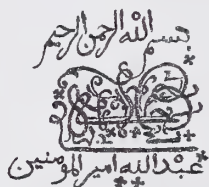 بسم الله الرحمن الرحيم
عبد الله امير المومنين